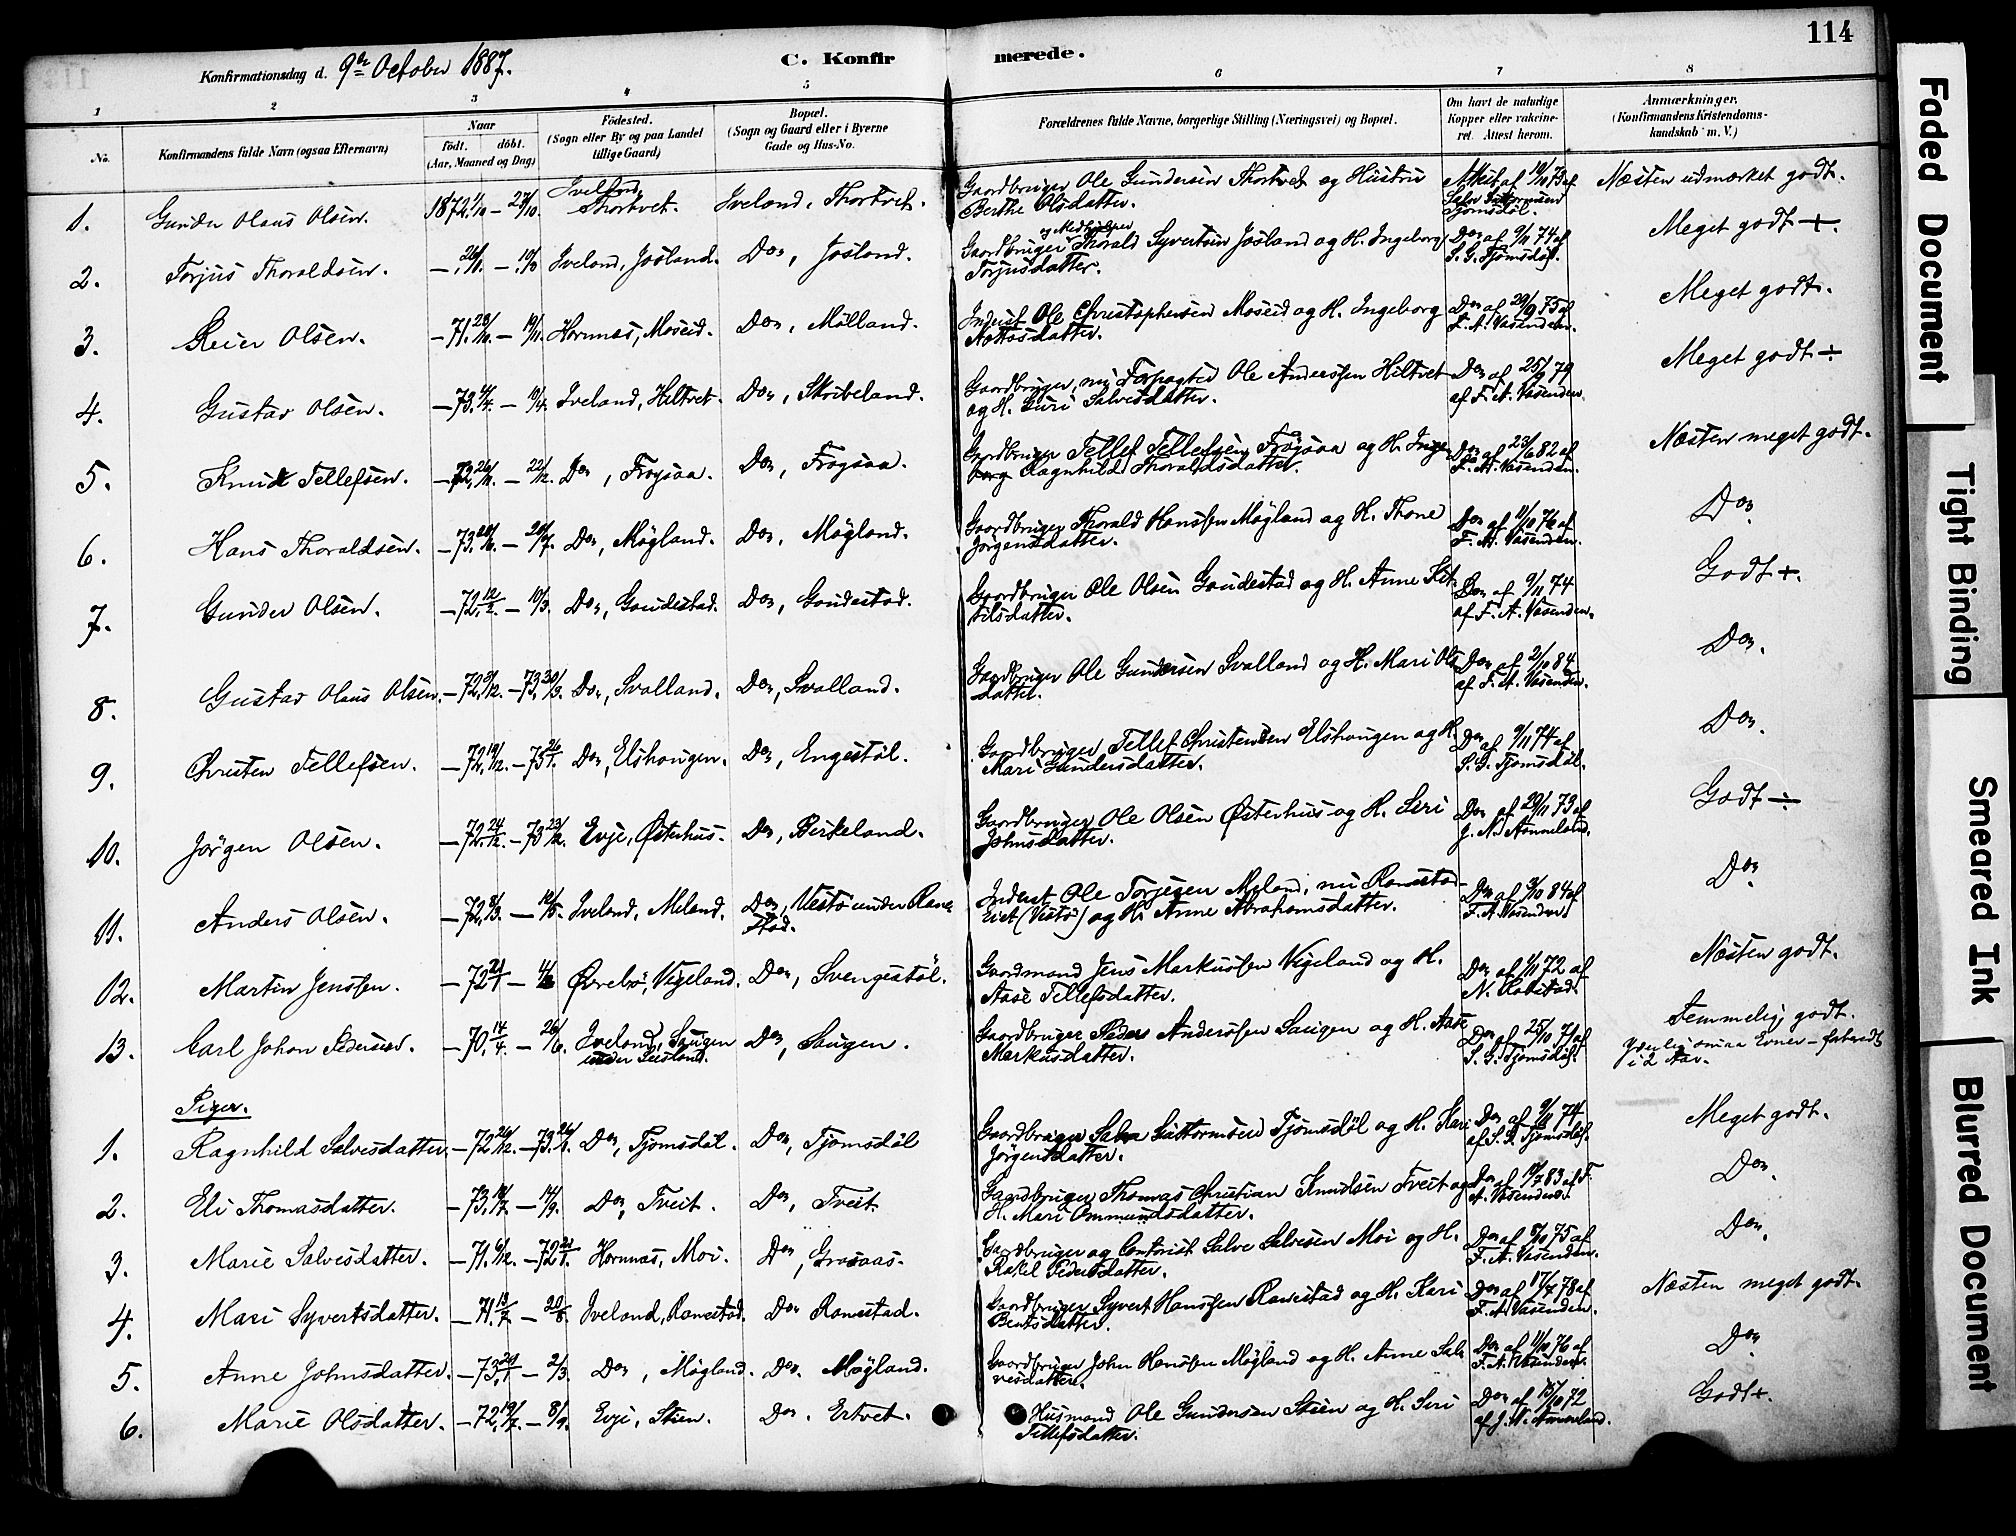 114
Konfirmationsdag d. 9de October 1887.
C. Konfirmerede.
1 2 3 4 5 6 7 8
No.
Konfirmandens fulde Navn (ogsaa Efternavn)
Naar
født. døbt.
(Aar, Maaned og Dag)
Fødested.
(Sogn eller By og paa Landet
tillige Gaard)
Bopæl.
(Sogn og Gaard eller i Byerne
Gade og Hus-No.
Forældrenes fulde Navne, borgerlige Stilling (Næringsvei) og Bopæl.
Om havt de naturlige
Kopper eller vakcine-
ret. Attest herom.
Anmærkninger.
(Konfirmandens Kristendoms-
kundskab m. V.)
1. Gunder Olaus Olsen. 1872 Iveland, Thortvet. Iveland, Thortvet. Gaardbruger Ole Gundersen Thortvet og Hustru
Berthe Olsdatter. Næsten udmærket godt.
2. Torjus Thoraldsen. Iveland, Josland. Do, Josland. Gaardbruger og Medhjelper Thorald Syvertsen Josland og H. Ingeborg
Torjusdatter. Do af 9/11 74 af S. G. Tjomsdøl. Meget godt +.
3. Reier Olsen. 71. Hornnæs, Moseid. Do, Mølland. Inderst Ole Christophersen Moseid og H. Ingeborg
datter. Do af 29/9 75 af F. A. Vasenden. Meget godt.
4. Gustav Olsen. 73. Iveland, Hiltvet. Do, Skribeland. Gaardbruger, nu Forpagter Ole Anderssen Hiltvet
og H. Guri Salvesdatter. Do af 79 af F. A. Vasenden. Meget godt ÷
5. Knud Tellefsen. 72. Do, Frøysaa. Do, Frøysaa. Gaardbruger Tellef Tellefsen Frøysaa og H. Inge-
borg Ragnhild Thoraldsdatter. Do af 23/6 82 af F. A. Vasenden. Næsten meget godt.
6. Hans Thoraldsen. 73. Do, Møgland. Do, Møgland. Gaardbruger Thorald Hanssen Møgland og H. Thone
Jørgensdatter. Do af 11/10 76 af F. A. Vasenden. Do
7. Gunder Olsen. 72. Do, Goudestad. Do, Goudestad. Gaardbruger Ole Olsen Goudestad og H. Anne Ket-
tilsdatter. Do af 9/11 74 af F. A. Vasenden. Godt +.
8. Gustav Olaus Olsen. 72 73. Do, Svalland. Do, Svalland. Gaardbruger Ole Gundersen Svalland og H. Mari Ols-
datter. Do af 2/10 84 af F. A. Vasenden. Do.
9. Christen Tellefsen. 72. Do, Elshougen. Do, Engestøl. Gaardbruger Tellef Christensen Elshougen og H.
Mari Gundersdatter. Do af 9/11 74 af S. G. Tjomsdøl. Do.
10. Jørgen Olsen. 72. 73 Evje, Østerhus. Do, Birkeland. Gaardbruger Ole Olsen Østerhus og H. Siri
Johnsdatter. Do af 29/11 73 af Godt ÷
11. Anders Olsen. 72. Iveland, Meland. Do, Vestø under Rane-
stad. Inderst Ole Torjesen Meland, nu Ranestad-
eiet (Vestø) og H. Anne Abrahamsdatter. Do af 3/10 84 af F. A. Vasenden. Do
12. Martin Jenssen. 72 Øvrebø, Vigeland. Do, Svengestøl. Gaardmand Jens Markussen Vigeland og H.
Aase Tellefsdatter. Do af 72 af N. Næsten godt.
13. Carl Johan Pedersen. 70. 14/4. Iveland, Saugen
under Do, Saugen. Gaardbruger Peder Anderssen Saugen og H. Aase
Markusdatter. Do af 25/10 71 af S. G. Tjomsdøl. Temmelig godt.
Yderlig smaa Evner – forberedt
i 2 Aar.
Piger.
1. Ragnhild Salvesdatter. 72 73. Do, Tjomsdøl. Do, Tjomsdøl Gaardbruger Salve Guttormsen Tjomsdøl og H. Kari
Jørgensdatter. Do af 9/11 74 af S. G. Tjomsdøl. Meget godt.
2. Eli Thomasdatter. 73. Do, Tveit. Do, Tveit. Gaardbruger Thomas Christian Knudsen Tveit og
H. Mari Ommundsdatter. Do af 83 af F. A. Vasenden. Do.
3. Marie Salvesdatter. 71. 72 Hornnæs, Moi. Do, Grosaas. Gaardbruger og Contorist Salve Salvesen Moi og H.
Rakel Pedersdatter. Do af 8/10 75 af F. A. Vasenden. Do.
4. Mari Syvertsdatter. 71. Iveland, Ranestad. Do Ranestad. Gaardbruger Syvert Hanssen Ranestad og H. Kari
Bentsdatter. Do af 17/7 78 af F. A. Vasenden. Næsten meget godt.
5. Anne Johnsdatter. 73. 2/3. Do, Møgland. Do. Møgland. Gaardbruger John Hanssen Møgland og H. Anne Sal-
vesdatter. Do af 11/10 76 af F. A. Vasenden. Do
6. Marie Olsdatter. 72. 8/9. Evje, Stien. Do. Ertvet. Husmand Ole Gundersen Stien og H. Siri
Tellefsdatter. Do af 15/10 72 Godt +.
Faded Document
Tight Binding
Smeared Ink
Blurred Document